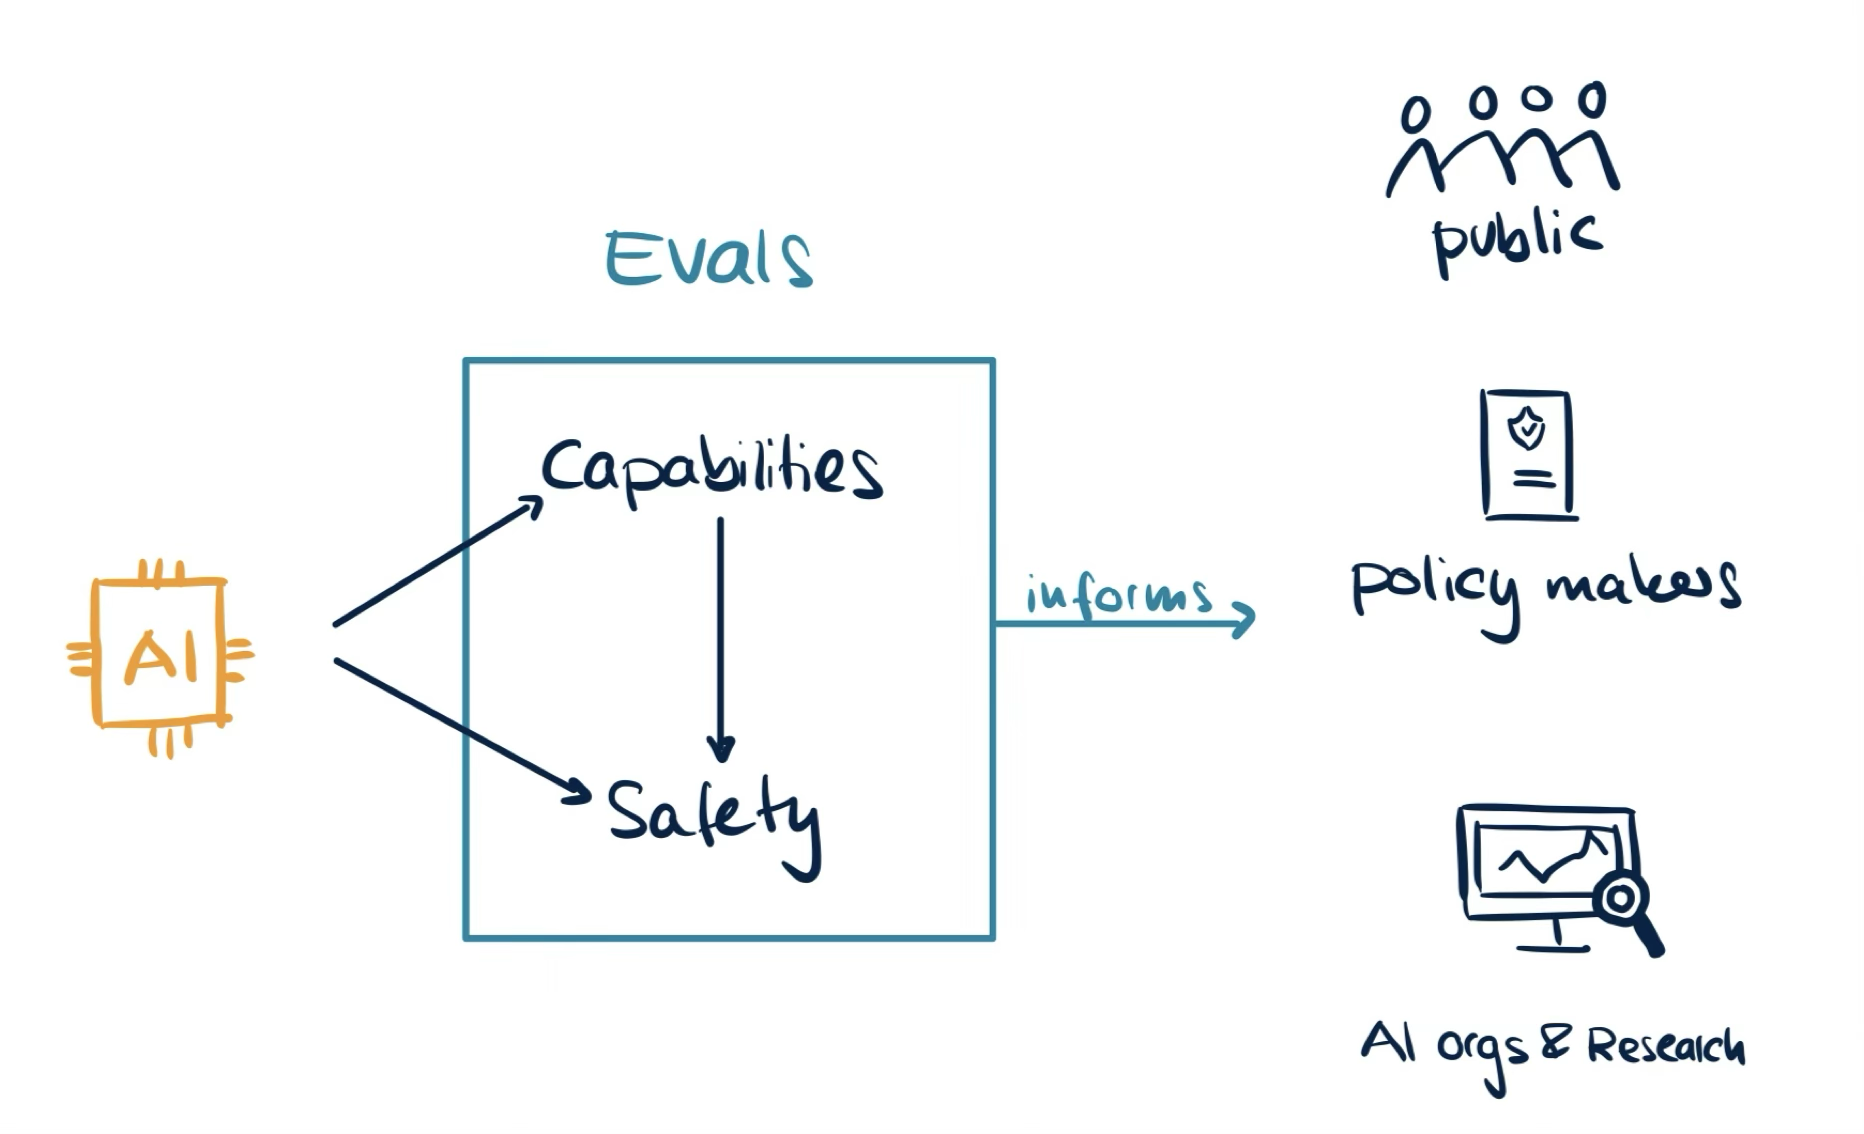 AI
Evals
Capabilities
Safety
informs
public
policy makers
AI orgs & Research